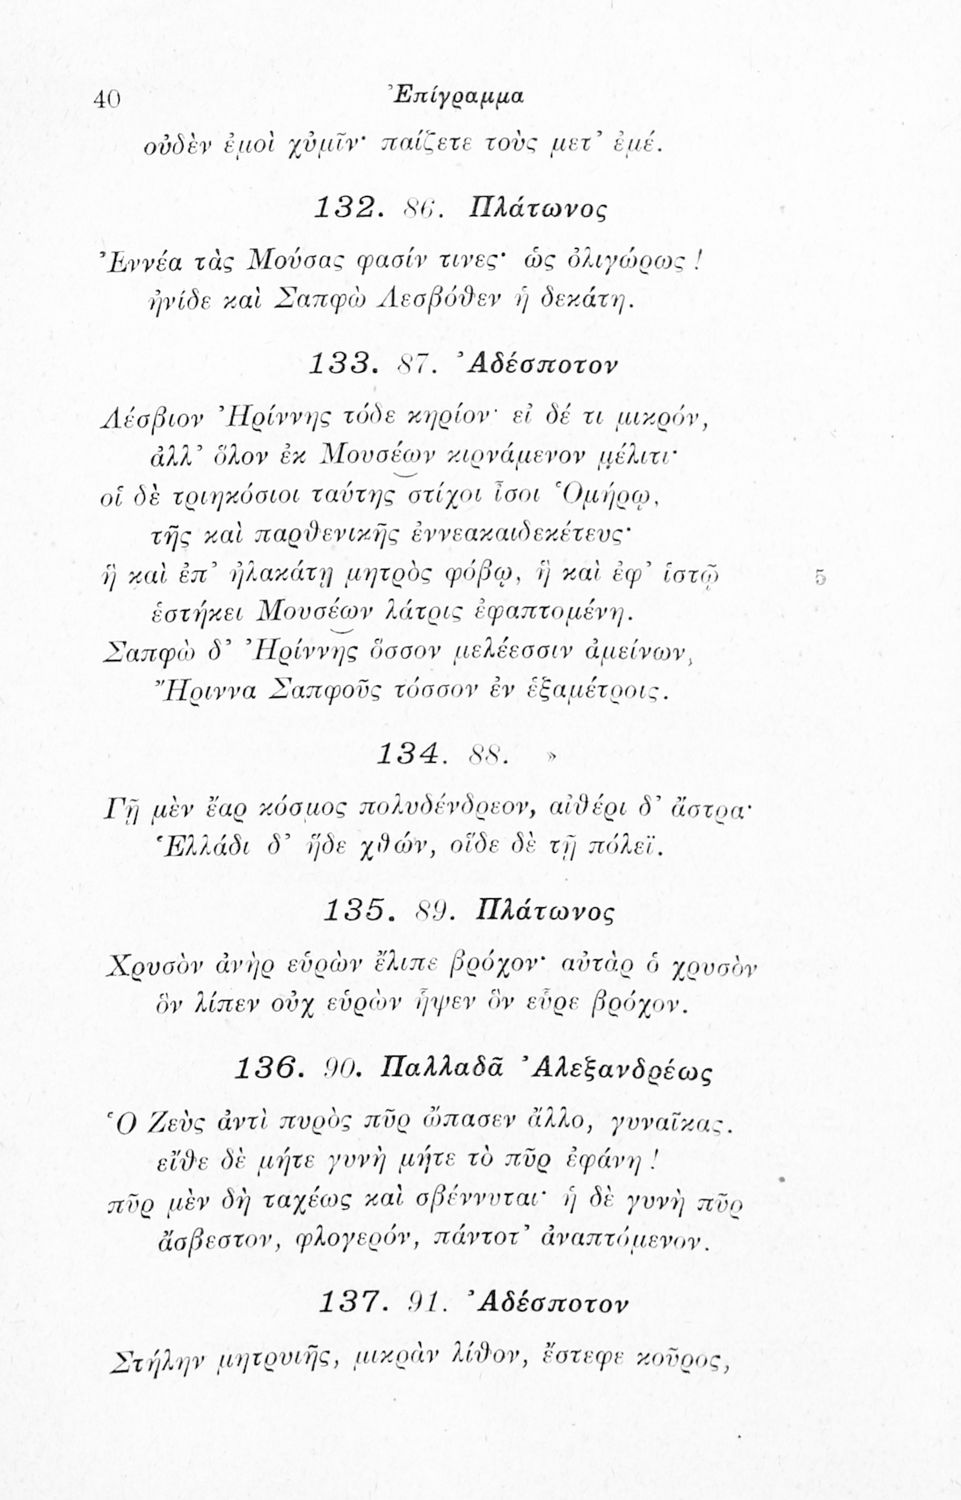 40
Ἐπίγραμμα
οὐδὲν ἐμοὶ χὐμῖν· παίζετε τοὺς μετ’ ἐμέ.
132. 86. Πλάτωνος
Ἐννέα τὰς Μούσας φασίν τινες· ὡς ὀλιγώρως !
ἠνίδε καὶ Σαπφὼ Λεσβόθεν ἡ δεκάτη.
133. 87. Ἀδέσποτον
Λέσβιον Ἠρίννης τόδε κηρίον· εἰ δέ τι μικρόν,
ἀλλ’ ὅλον ἐκ Μουσέων κιρνάμενον μέλιτι·
οἱ δὲ τριηκόσιοι ταύτης στίχοι ἶσοι Ὁμήρῳ,
τῆς καὶ παρθενικῆς ἐννεακαιδεκέτευς·
ἣ καὶ ἐπ’ ἠλακάτῃ μητρὸς φόβῳ, ἣ καὶ ἐφ’ ἱστῷ
5
ἑστήκει Μουσέων λάτρις ἐφαπτομένη.
Σαπφὼ δ’ Ἠρίννης ὅσσον μελέεσσιν ἀμείνων,
Ἤριννα Σαπφοῦς τόσσον ἐν ἑξαμέτροις.
134. 88. »
Γῇ μὲν ἔαρ κόσμος πολυδένδρεον, αἰθέρι δ’ ἄστρα·
Ἑλλάδι δ’ ἥδε χθών, οἵδε δὲ τῇ πόλεϊ.
135. 89. Πλάτωνος
Χρυσὸν ἀνὴρ εὑρὼν ἔλιπε βρόχον· αὐτὰρ ὁ χρυσὸν
ὃν λίπεν οὐχ εὑρὼν ἧψεν ὃν εὗρε βρόχον.
136. 90. Παλλαδᾶ Ἀλεξανδρέως
Ὁ Ζεὺς ἀντὶ πυρὸς πῦρ ὤπασεν ἄλλο, γυναῖκας.
εἴθε δὲ μήτε γυνὴ μήτε τὸ πῦρ ἐφάνη !
πῦρ μὲν δὴ ταχέως καὶ σβέννυται· ἡ δὲ γυνὴ πῦρ
ἄσβεστον, φλογερόν, πάντοτ’ ἀναπτόμενον.
137. 91. Ἀδέσποτον
Στήλην μητρυιῆς, μικρὰν λίθον, ἔστεφε κοῦρος,